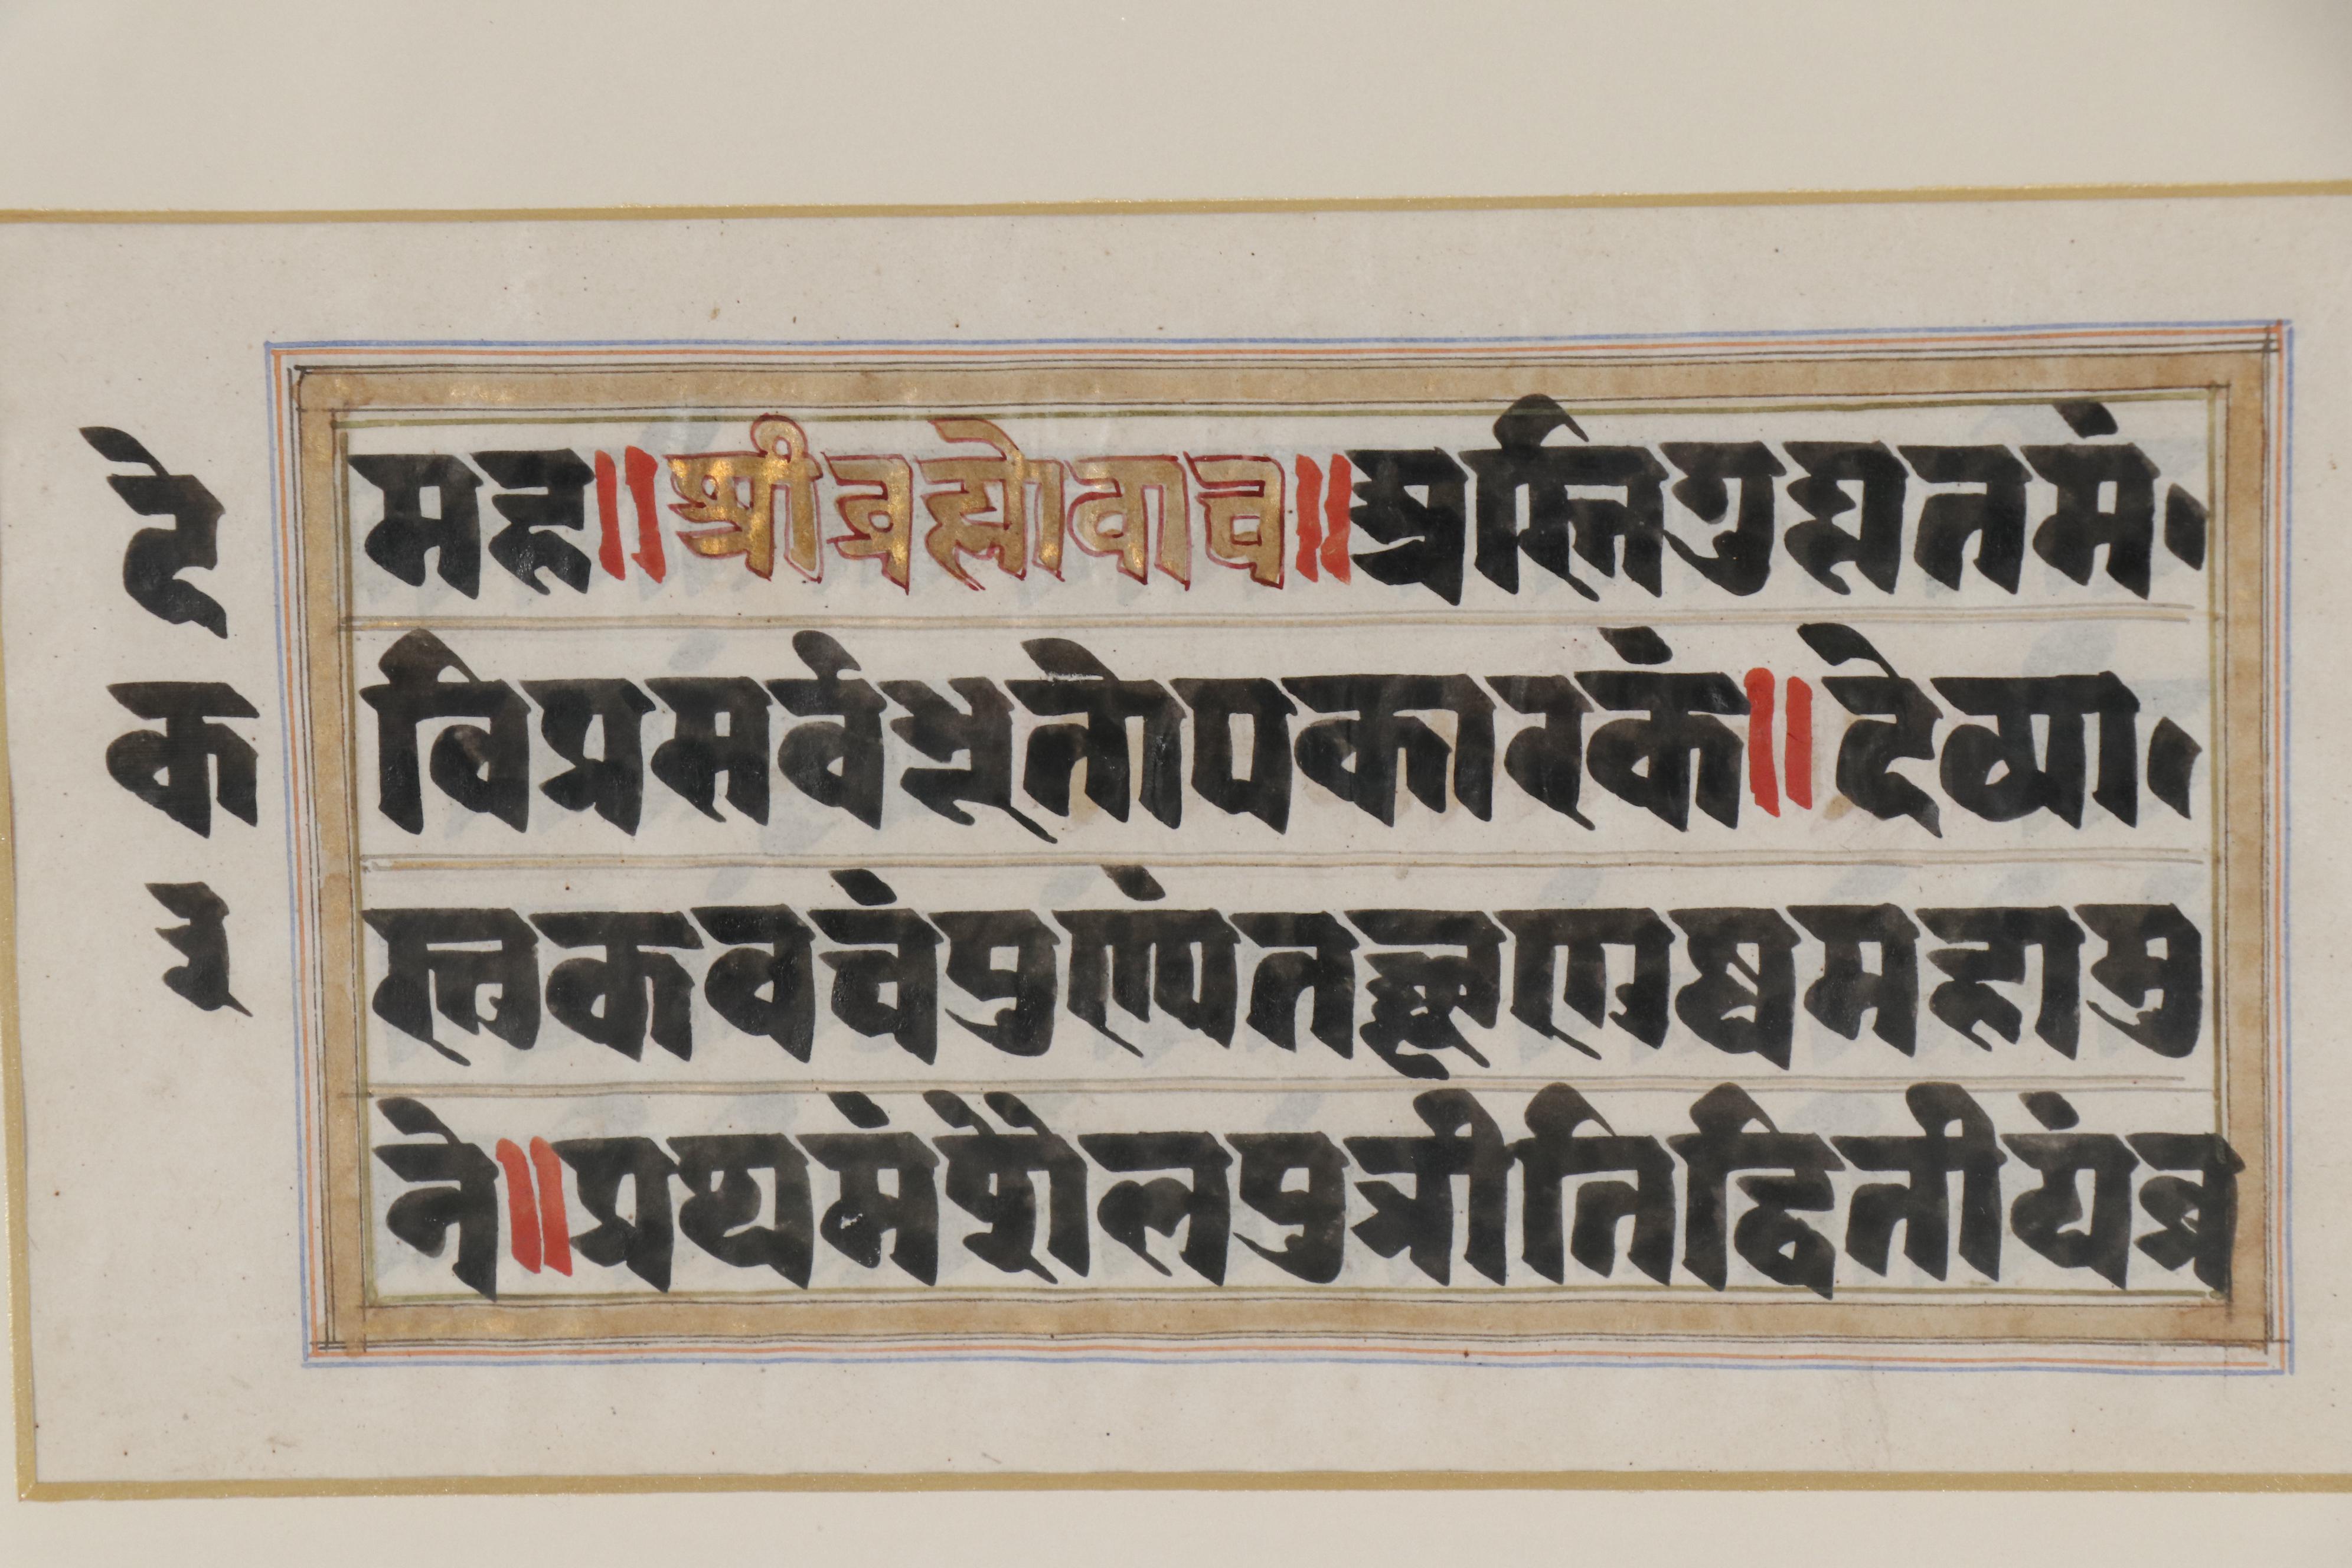 दे
क
३
मह॥श्रीब्रह्मोवाच॥अस्तिगुह्यतमं
विप्रसर्वभूतोपकारकं॥देव्या
स्तुकवचंपुण्यंतच्छृणुष्वमहामु
ने॥प्रथमंशैलपुत्रीतिद्वितीयंब्र